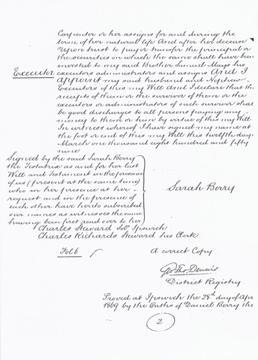 Carpenter or her assigns for and during the
term of her natural life And after her decease
Upon trust to pay or transfer the principal or
the securities on which the same shall have been
invested to my said Brother Samuel Mays his
Executors executors administrators and assigns And I
Appoint my said husband and Nephew
Executors of this my Will And I declare that the
receipts of them or the survivor of them or the
executors or administrators of such survivor shall
be good discharges to all persons paying any
money to them or him by virtue of this my Will
In witness whereof I have signed my name at
the foot or end of this my Will this day of
March one thousand eight hundred and fifty
nine
Signed by the said Sarah Berry
the Testatrix as and for her last
Will and Testament in the presence
of us present at the same time
who in her presence at her
request and in the presence of
each other have hereto subscribed
our names as witnesses the same
having been first read over to her
Sarah Berry
Charles Steward Sol Ipswich
Charles Richards Steward his Clerk
Fol 6
A correct Copy
District Registry
Proved at Ipswich the 28th day of Apr
1869 by the Oaths of Daniel Berry the
2